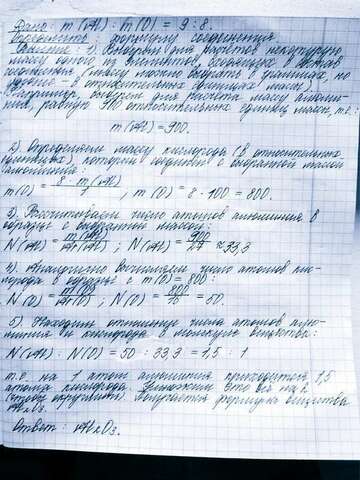 Дано: m(Al) : m(O) = 9 : 8.
Определить формулу соединения
Решение: 1). Выберем для расчётов некоторую
массу одного из элементов, входящих в состав
соединения (массу можно выбрать в граммах, но
удобнее – в относительных единицах массы).
Например, выберем для расчёта массу алюми-
ния, равную 900 относительных единиц массы, т.е.:
m(Al) = 900.
2) Определяем массу кислорода (в относительных
единицах), которая соединена с выбранной массой
алюминия:
m(O) = 8 · m(Al) / 9, m(O) = 8 · 100 = 800.
3) Рассчитываем число атомов алюминия в
образце с выбранной массой:
N(Al) = m(Al) / Ar(Al); N(Al) = 900 / 27 ≈ 33,3
4). Аналогично вычисляем число атомов кис-
лорода в образце с m(O) = 800:
N(O) = m(O) / Ar(O); N(O) = 800 / 16 = 50.
5). Находим отношение числа атомов алю-
миния и кислорода в молекуле вещества:
N(Al) : N(O) = 50 : 33,3 = 1,5 : 1
т.е. на 1 атом алюминия приходится 1,5
атома кислорода. Умножим это всё на 2
(чтобы округлить). Получается формула вещества
Al₂O₃.
Ответ: Al₂O₃.